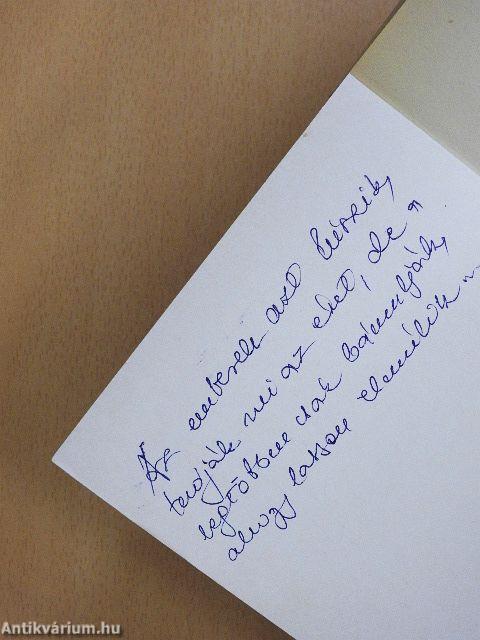 Az emberek azt hiszik,
tudják mi az élet, de
legtöbben csak bámulják,
ahogy lassan elmúlik...
Antikvárium.hu